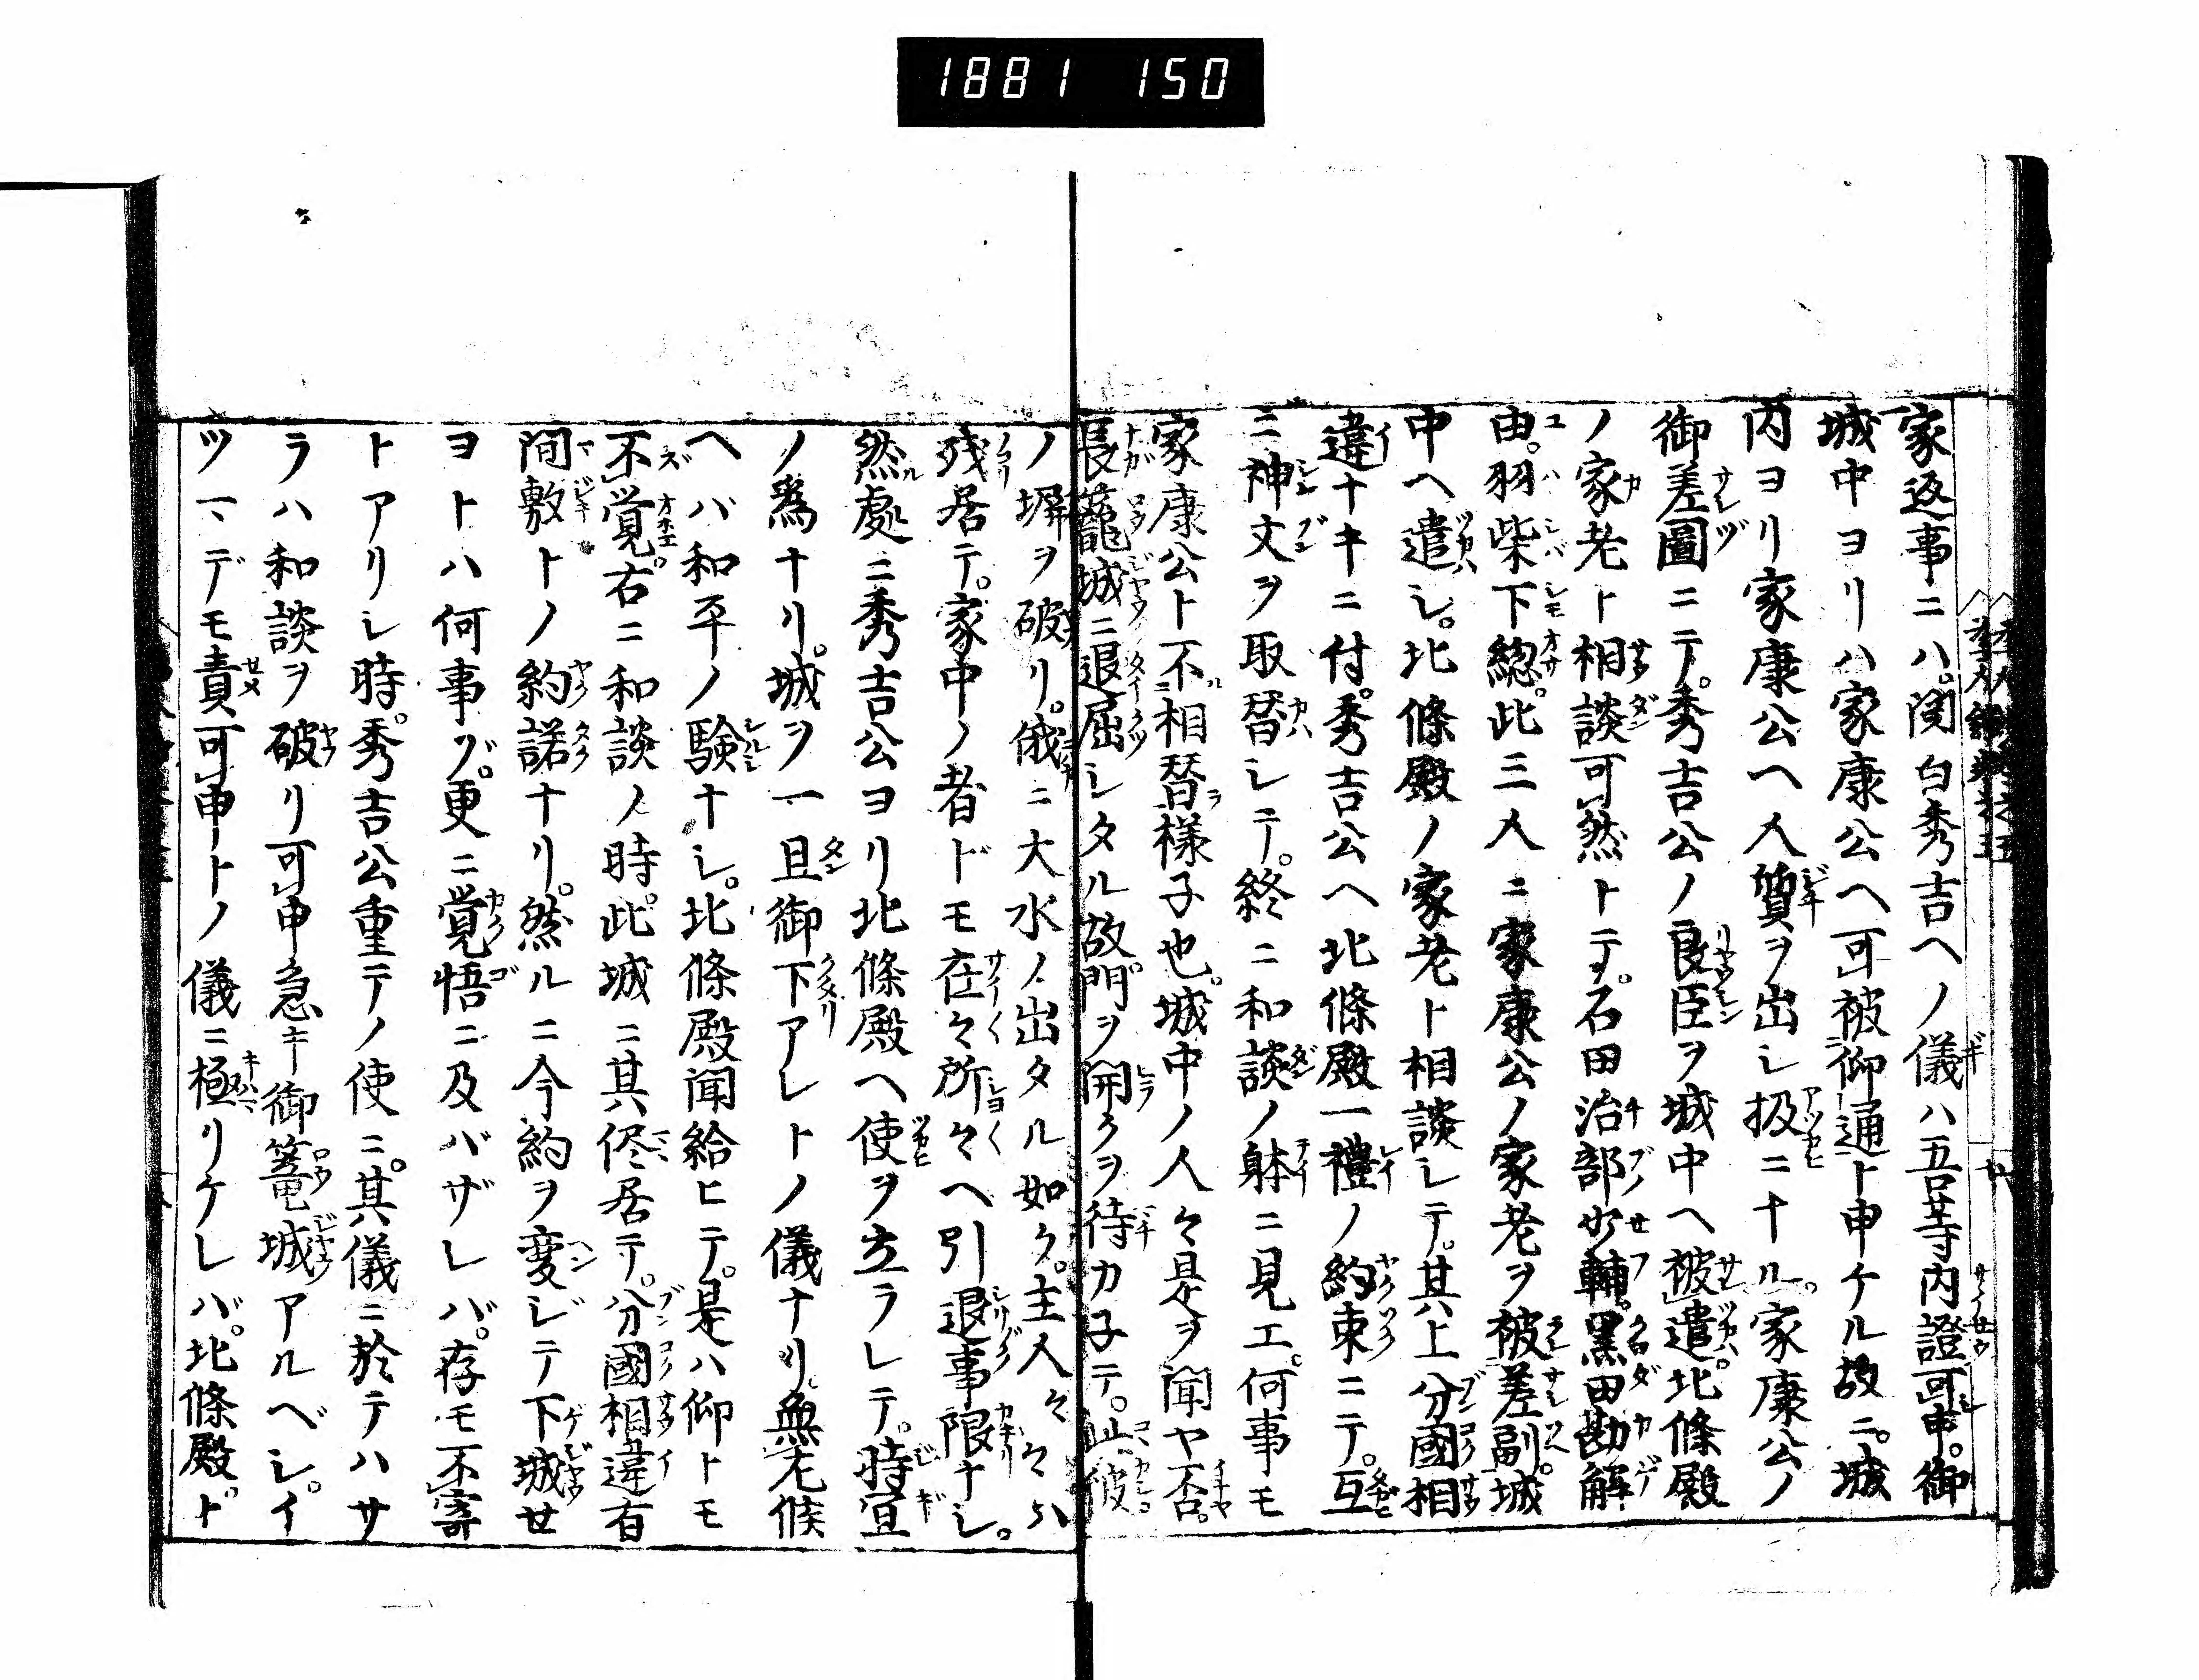 1881 150
家返事ニハ。関白秀吉ヘノ儀ハ吾等内證可申。御
城中ヨリハ家康公ヘ可被仰通ト申ケル故ニ。城
内ヨリ家康公ヘ人質ヲ出シ扱ニナル。家康公ノ
御差圖ニテ。秀吉公ノ良臣ヲ城中ヘ被遣。北條殿
ノ家老ト相談可然トテ。石田治部少輔。黒田勘解
由。羽柴下総。此三人ニ家康公ノ家老ヲ被差副。城
中ヘ遣シ。北條殿ノ家老ト相談シテ。其上分國相
違ナキニ付。秀吉公ヘ北條殿一禮ノ約束ニテ。互
ニ神文ヲ取替シテ。終ニ和談ノ躰ニ見エ。何事モ
家康公ト不相替様子也。城中ノ人々是ヲ聞ヤ否。
長籠城ニ退屈シタル故。門ヲ開クヲ待カ子テ。此彼
ノ塀ヲ破リ。俄ニ大水ノ出タル如ク。主人々々ハ
残居テ。家中ノ者ドモ在々所々ヘ引退事限ナシ。
然處ニ秀吉公ヨリ北條殿ヘ使ヲ立ラレテ。時宜
ノ為ナリ。城ヲ一旦御下アレトノ儀ナリ。無左候
ヘバ和平ノ験ナシ。北條殿聞給ヒテ。是ハ仰トモ
不覚。右ニ和談ノ時。此城ニ其侭居テ。分國相違有
間敷トノ約諾ナリ。然ルニ今約ヲ変ジテ下城セ
ヨトハ何事ゾ。更ニ覚悟ニ及バザレバ。存モ不寄
トアリシ時。秀吉公重テノ使ニ。其儀ニ於テハサ
ラハ和談ヲ破リ可申急キ御篭城アルベシ。イ
ツマデモ責可申トノ儀ニ極リケレバ。北條殿ト